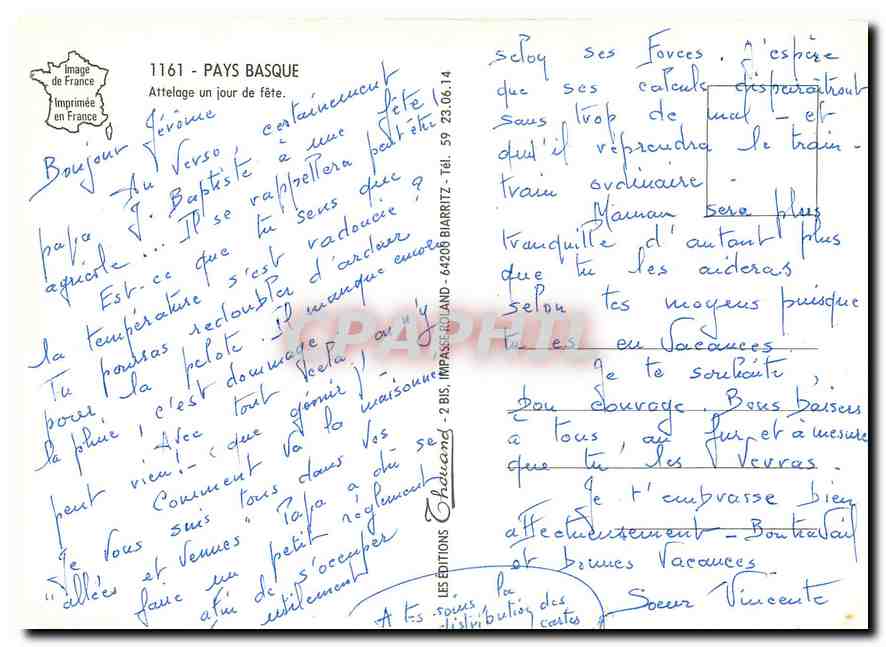 Image
de France
Imprimée
en France
1161 - PAYS BASQUE
Attelage un jour de fête.
Bonjour Jérôme
Au verso, certainement
papa J. Baptiste à une fête
agricole... Il se rappellera peut être
Est-ce que tu sens que
la température s'est radoucie ?
Tu pourras redoubler d'ardeur
pour la pelote. Il manque encore
la pluie ! c'est dommage
Avec tout cela, on n'y
peut rien ! - que gémir ! -
Comment va la maisonnée
Je vous suis tous dans vos
"allées et venues" Papa a dû se
faire un petit règlement
afin de s'occuper
utilement
LES EDITIONS Thouand - 2 BIS, IMPASSE ROLAND - 64200 BIARRITZ - Tél. 59 23.06.14
selon ses Forces. J'espère
que ses calculs disparaîtront
sans trop de mal - et
qu'il reprendra le train-
train ordinaire -
Maman sera plus
tranquille d'autant plus
que tu les aideras
selon tes moyens puisque
tu es en Vacances
Je te souhaite,
bon courage. Bons baisers
à tous, au fur et à mesure
que tu les verras -
Je t'embrasse bien
affectueusement - Bon travail
et bonnes Vacances
Soeur Vincente
A tes soins la
distribution des
cartes
CPAPHIL